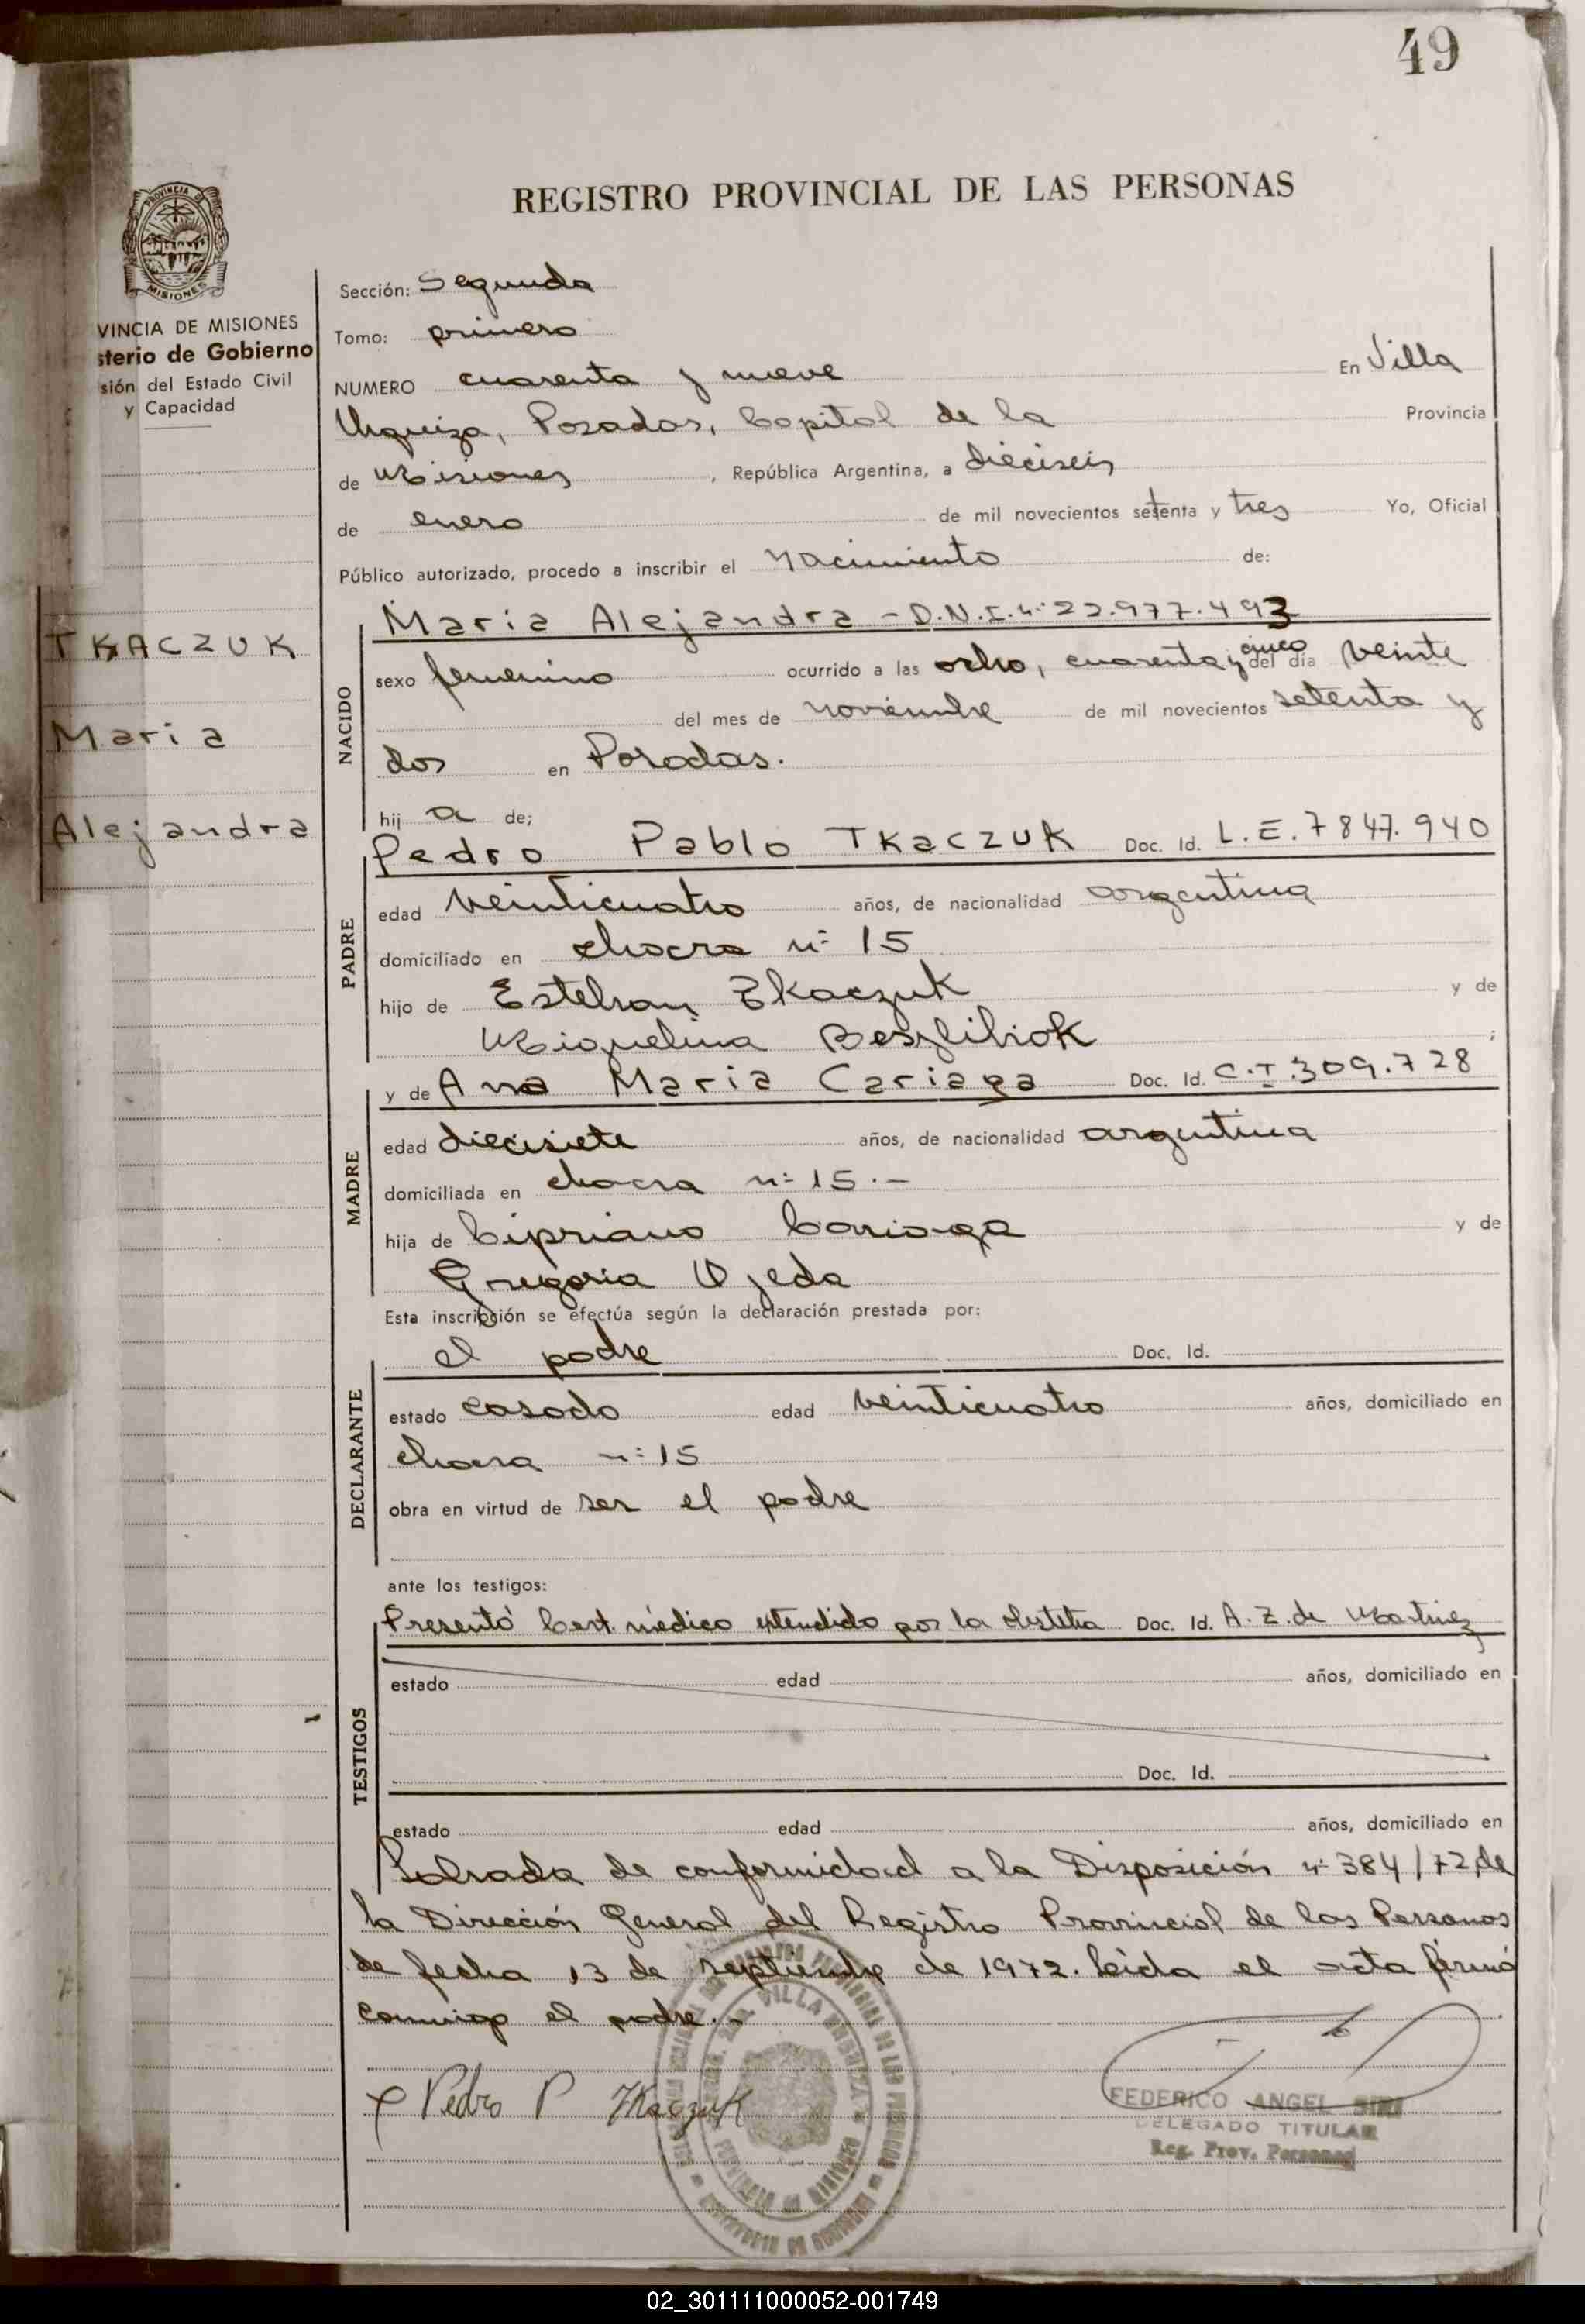 49
REGISTRO PROVINCIAL DE LAS PERSONAS
MISIONES
VINCIA DE MISIONES
sterio de Gobierno
sión del Estado Civil
y Capacidad
TKACZUK
Maria
Alejandra
Sección: Segunda
Tomo: primero
NUMERO cuarenta y nueve En Villa
Urquiza, Posadas, Capital de la Provincia
de Misiones, República Argentina, a dieciseis
de enero de mil novecientos setenta y tres Yo, Oficial
Público autorizado, procedo a inscribir el nacimiento de:
NACIDO
Maria Alejandra - D.N.I. nº 22.977.493
sexo femenino ocurrido a las ocho, cuarenta y cinco del día veinte
del mes de noviembre de mil novecientos setenta y
dos en Posadas.
hij a de;
PADRE
Pedro Pablo TKACZUK Doc. Id. L.E. 7847.940
edad veinticuatro años, de nacionalidad argentina
domiciliado en chacra nº 15
hijo de Esteban Tkaczuk y de
Miguelina ;
MADRE
y de Ana Maria Cariaga Doc. Id. C.I. 309.728
edad diecisiete años, de nacionalidad argentina
domiciliada en chacra nº 15.-
hija de Cipriano Cariaga y de
Gregoria Ojeda
Esta inscripción se efectúa según la declaración prestada por:
DECLARANTE
el padre Doc. Id.
estado casado edad veinticuatro años, domiciliado en
chacra nº 15
obra en virtud de ser el padre
ante los testigos:
TESTIGOS
Presentó Cert. médico extendido por la obstetra Doc. Id. A. Z. de Martinez
estado edad años, domiciliado en
Doc. Id.
estado edad años, domiciliado en
Labrada de conformidad a la Disposición nº 384/72, de
la Dirección General del Registro Provincial de las Personas
de fecha 13 de septiembre de 1972. Leida el acta firmó
conmigo el padre.-
Pedro P Tkaczuk
FEDERICO ANGEL
DELEGADO TITULAR
Reg. Prov. Personas
VILLA URQUIZA
02_301111000052-001749